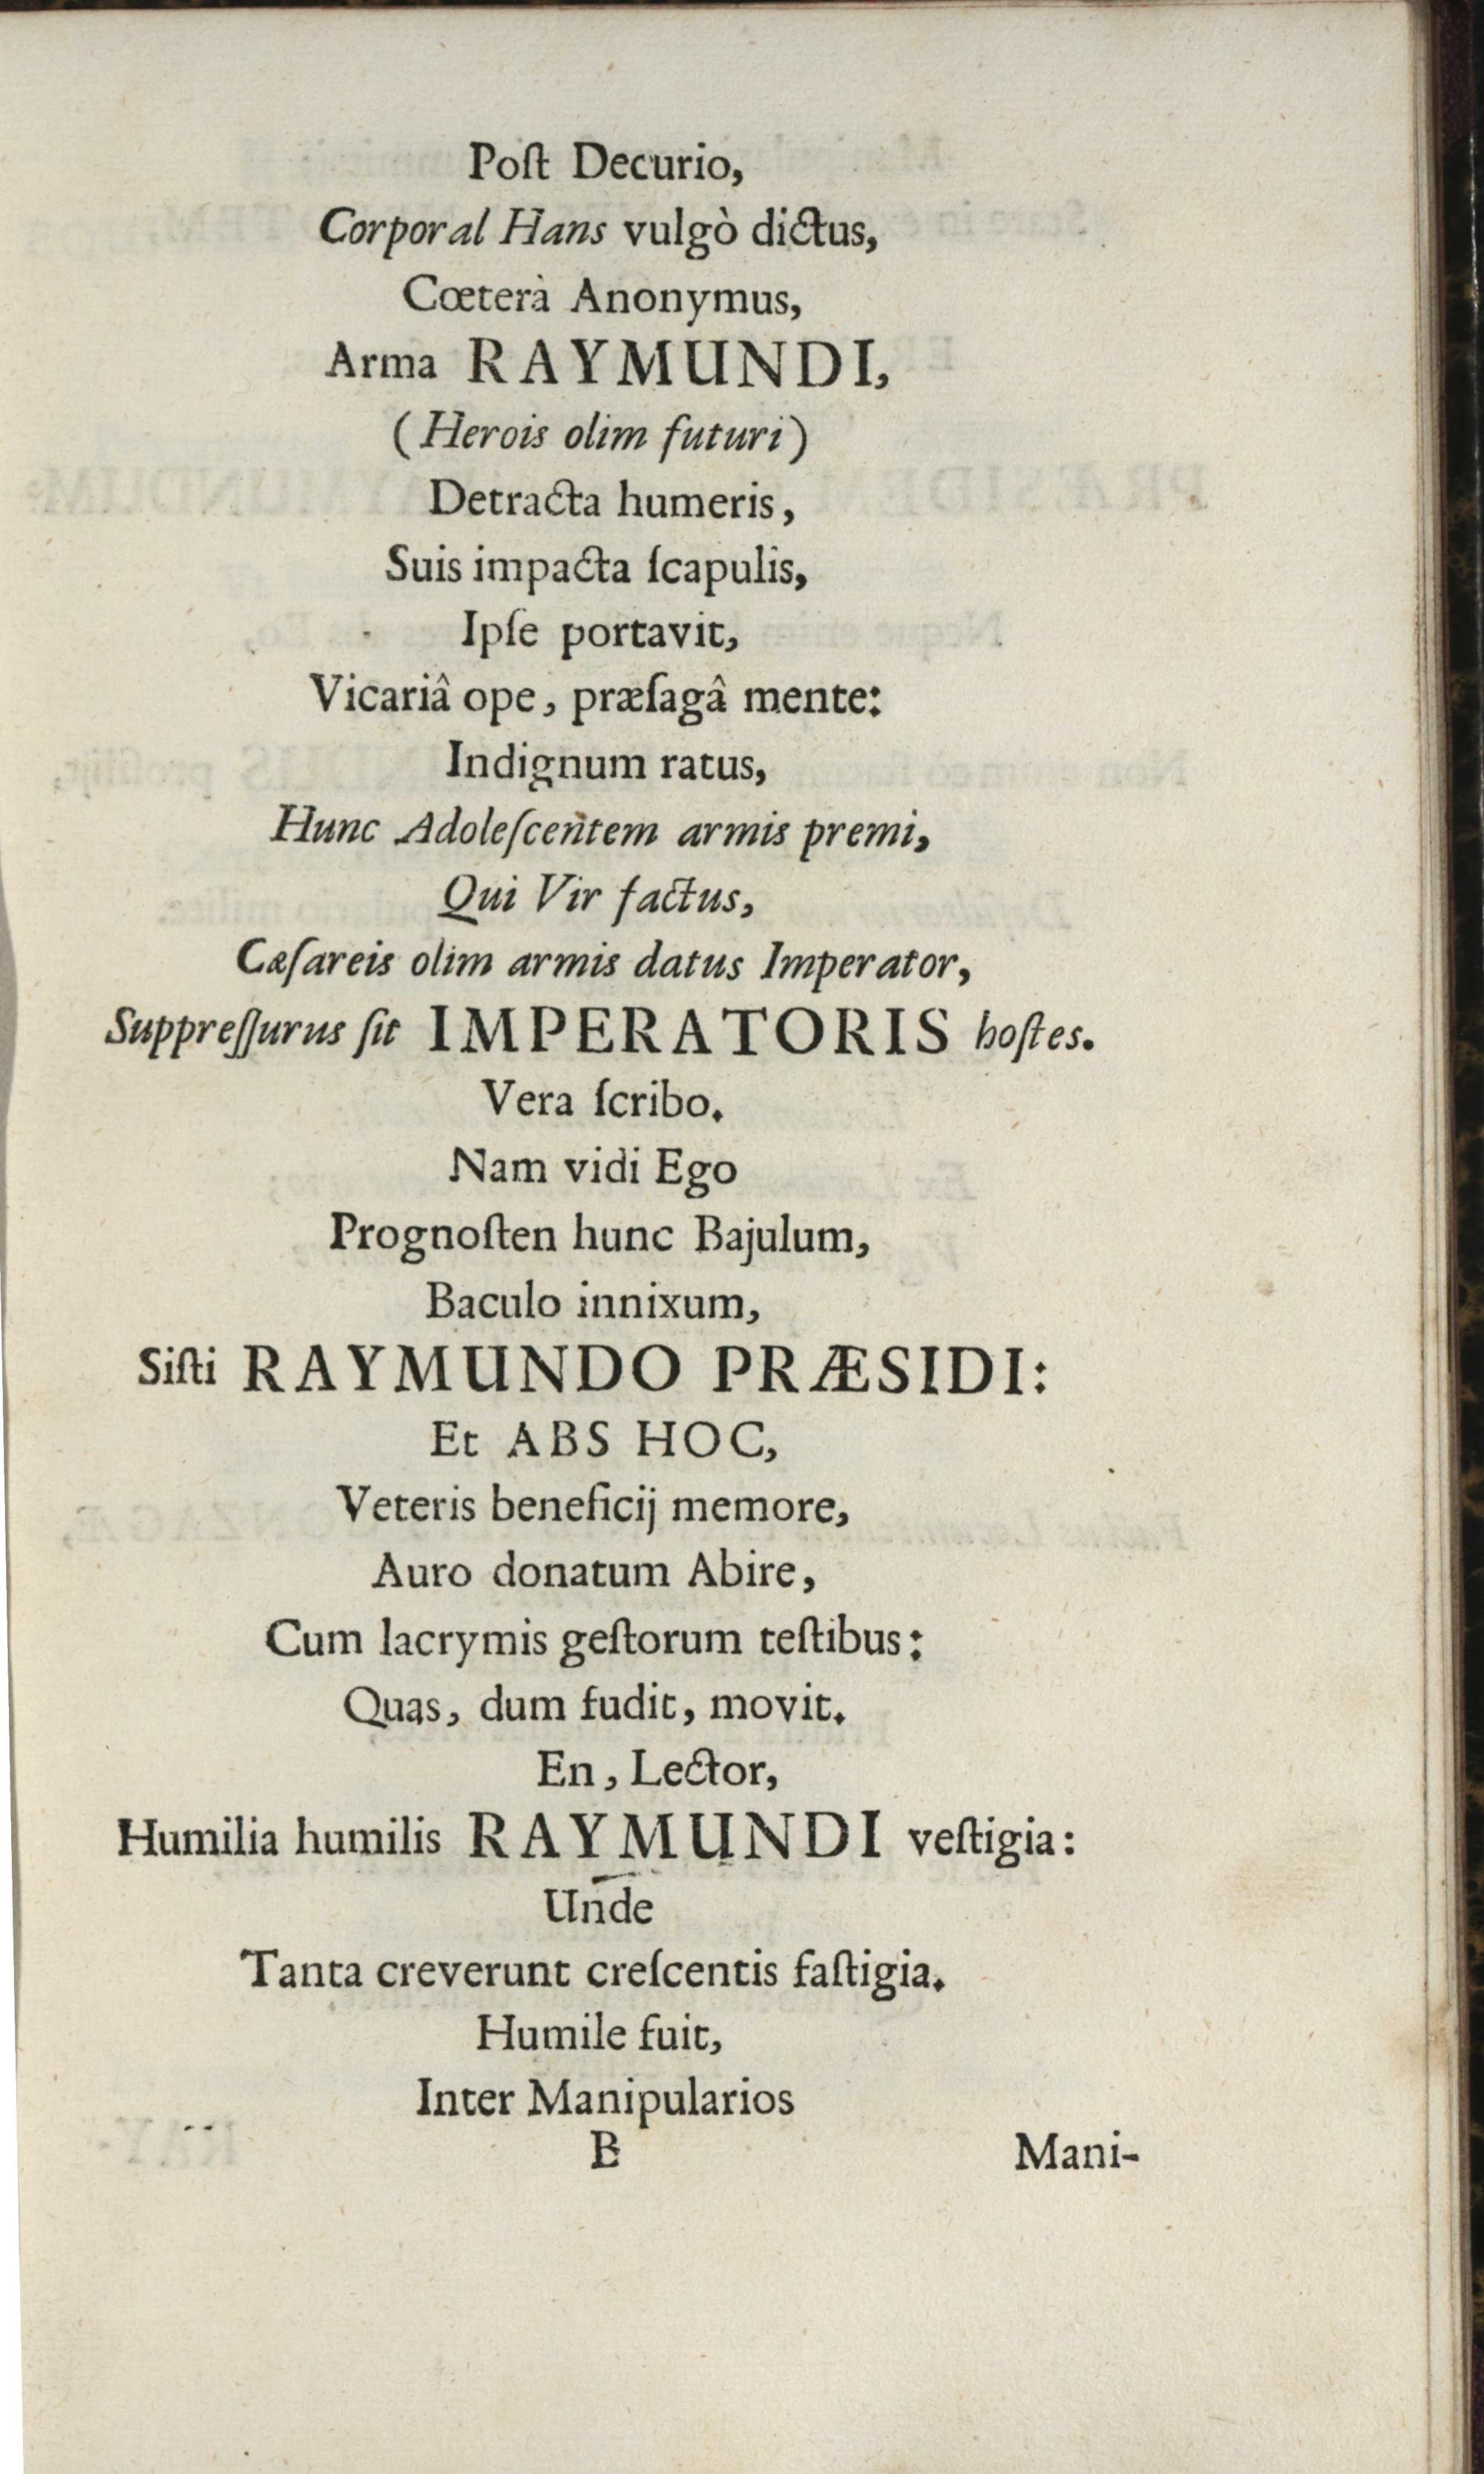 Poſt Decurio,
Corporal Hans vulgò dictus,
Cœterà Anonymus,
Arma RAYMUNDI,
(Herois olim futuri)
Detracta humeris,
Suis impacta ſcapulis,
Ipſe portavit,
Vicariâ ope, præſagâ mente:
Indignum ratus,
Hunc Adoleſcentem armis premi,
Qui Vir factus,
Cæſareis olim armis datus Imperator,
Suppreſſurus ſit IMPERATORIS hoſtes.
Vera ſcribo.
Nam vidi Ego
Prognoſten hunc Bajulum,
Baculo innixum,
Siſti RAYMUNDO PRÆSIDI:
Et ABS HOC,
Veteris beneficij memore,
Auro donatum Abire,
Cum lacrymis geſtorum teſtibus:
Quas, dum fudit, movit.
En, Lector,
Humilia humilis RAYMUNDI veſtigia:
Unde
Tanta creverunt creſcentis faſtigia.
Humile fuit,
Inter Manipularios
B Mani-